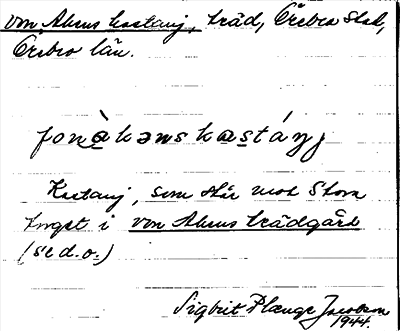 von Akens kastanj, träd, Örebro stad,
Örebro län.
fonà̱kənska̱s̱tánj
Kastanj, som står mot Stora
torget i von Akens trädgård
(se d.o.)
Sigbrit Plænge Jacobson
1944.